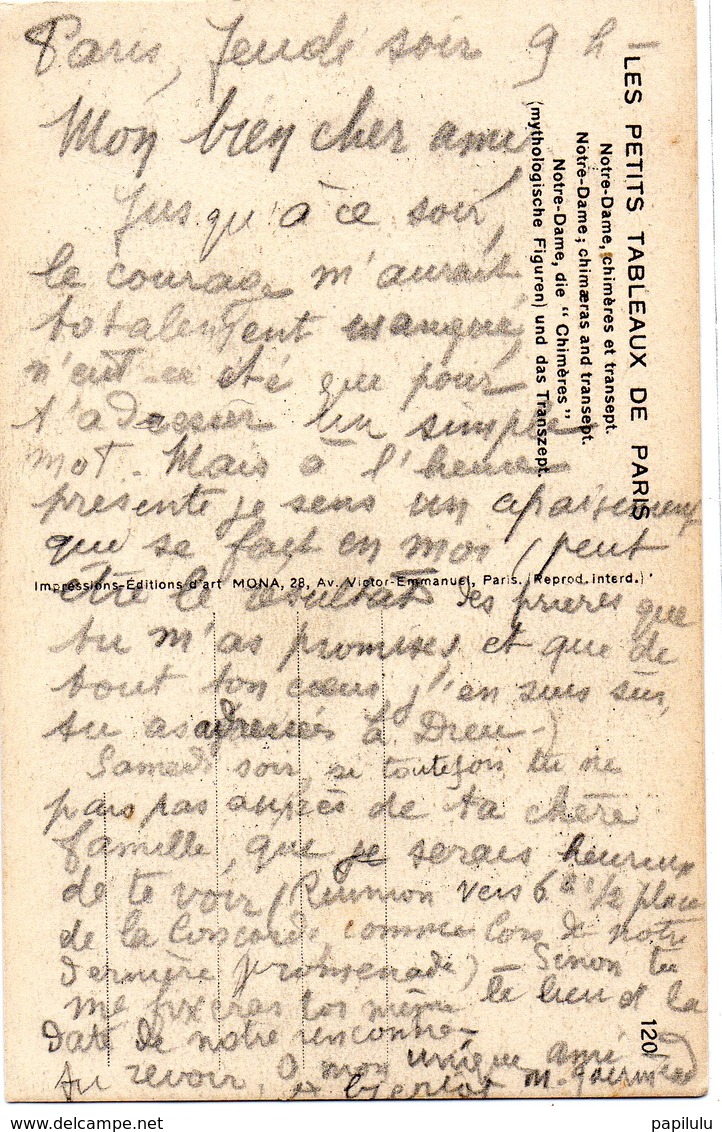 Paris, Jeudi soir 9 h -
Mon bien cher ami
Jusqu'à ce soir,
le courage m'aurait
totalement manqué,
n'eut-ce été que pour
t'adresser un simple
mot. Mais à l'heure
présente je sens un apaisement
qui se fait en moi (peut
être le résultat des prières que
tu m'as promises et que de
tout ton cœur, j'en suis sûr,
tu as adressées à Dieu -)
Samedi soir, si toutefois tu ne
pars pas auprès de ta chère
famille, que je serais heureux
de te voir (Réunion vers 6 h 1/2 place
de la Concorde comme lors de notre
dernière promenade) - Sinon tu
me fixeras toi même le lieu et la
date de notre rencontre -
Au revoir, O mon unique ami
A bientôt M.
LES PETITS TABLEAUX DE PARIS
Notre-Dame, chimères et transept.
Notre-Dame; chimæras and transept.
Notre-Dame, die "Chimères"
(mythologische Figuren) und das Transzept.
Impressions-Éditions d'art MONA, 28, Av. Victor-Emmanuel, Paris. (Reprod. interd.)
120
www.delcampe.net
papilulu